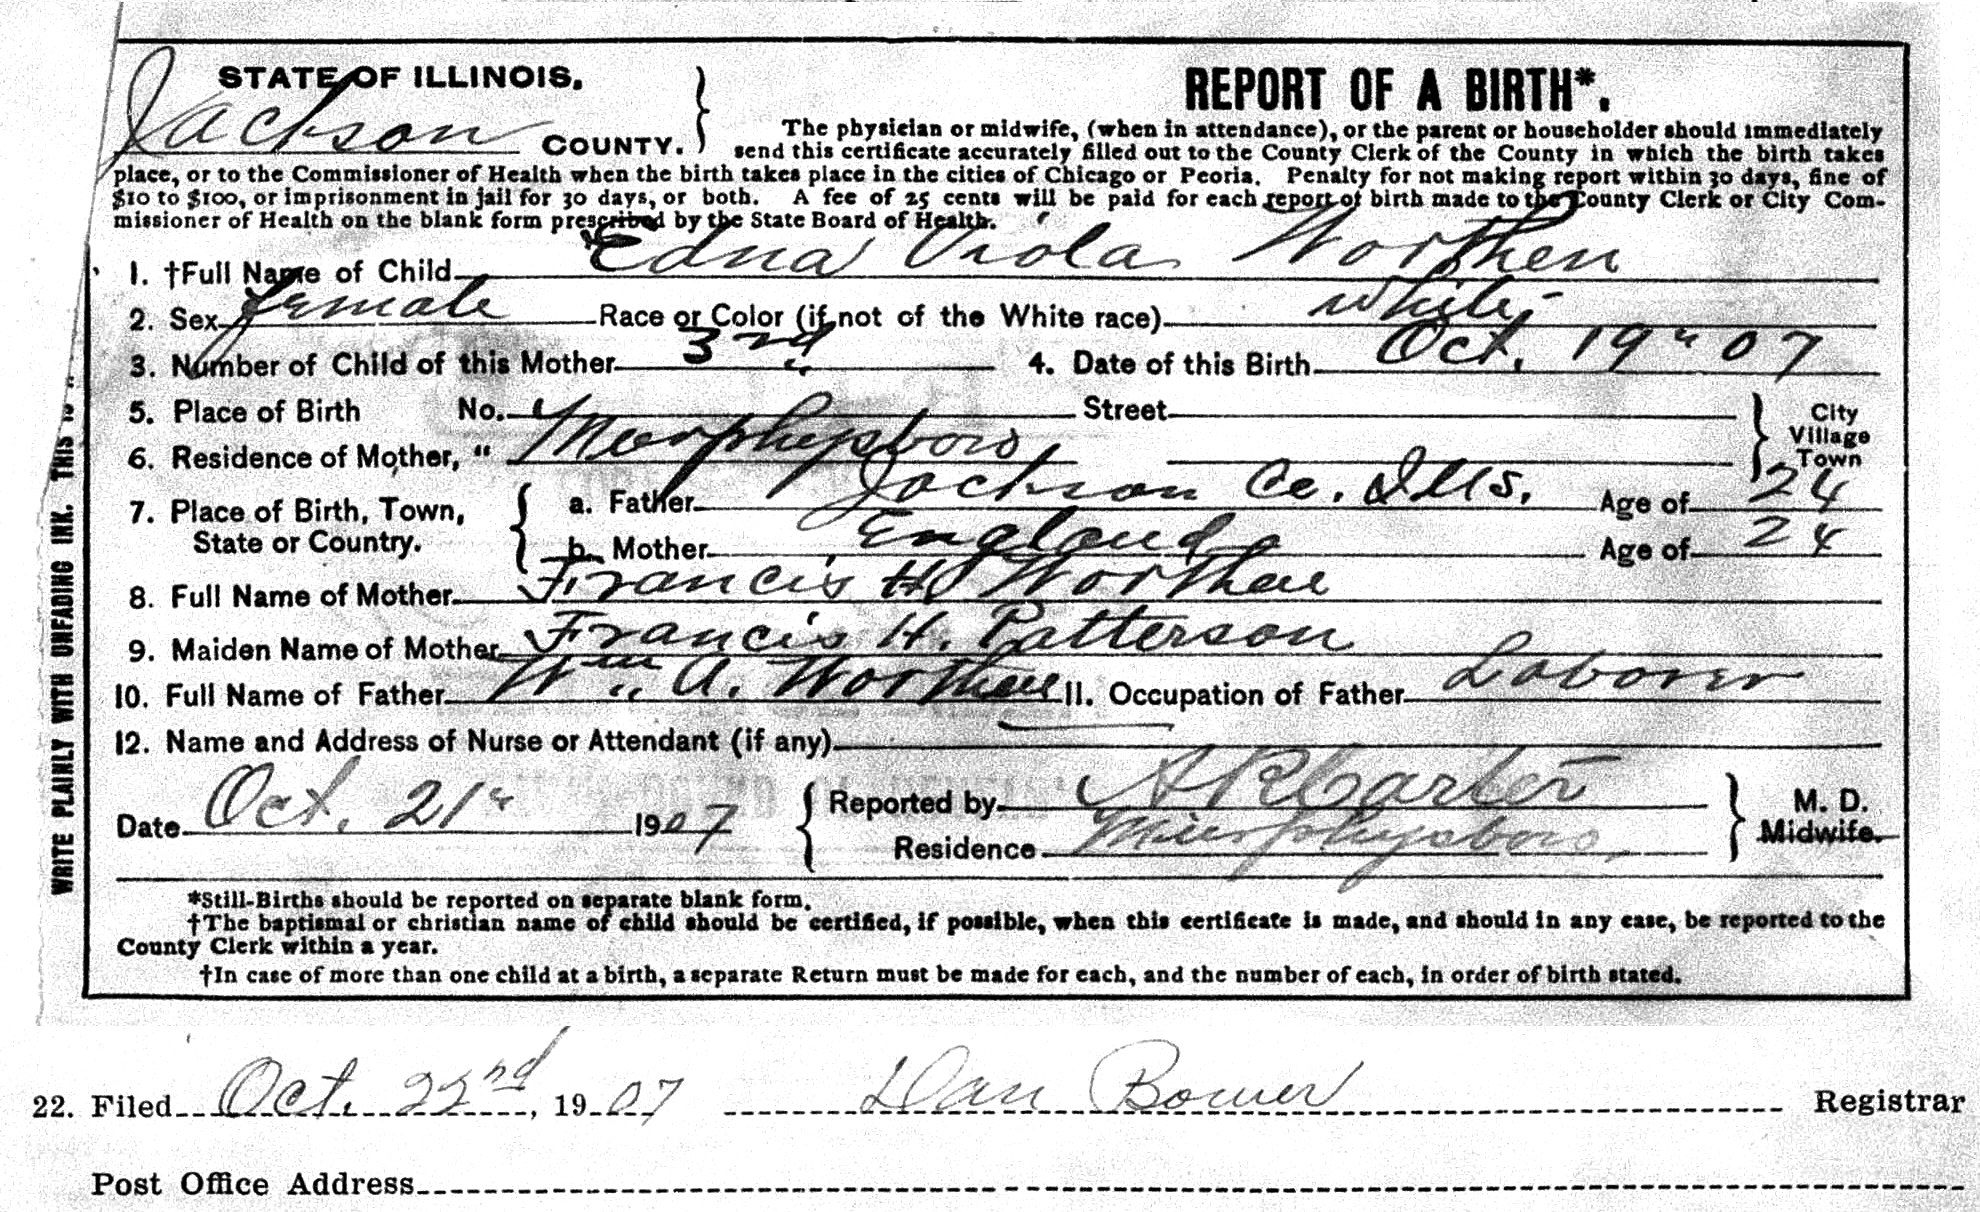 STATE OF ILLINOIS.
Jackson COUNTY.
REPORT OF A BIRTH*.
The physician or midwife, (when in attendance), or the parent or householder should immediately
send this certificate accurately filled out to the County Clerk of the County in which the birth takes
place, or to the Commissioner of Health when the birth takes place in the cities of Chicago or Peoria. Penalty for not making report within 30 days, fine of
$10 to $100, or imprisonment in jail for 30 days, or both. A fee of 25 cents will be paid for each report of birth made to the County Clerk or City Com-
missioner of Health on the blank form prescribed by the State Board of Health.
1. †Full Name of Child Edna Viola Worthen
2. Sex female Race or Color (if not of the White race) White
3. Number of Child of this Mother 3rd 4. Date of this Birth Oct. 19" 07
5. Place of Birth No. Street City
Village
6. Residence of Mother, " Murphysboro Town
7. Place of Birth, Town, State or Country. a. Father Jackson Co. Ills. Age of 24
b. Mother England Age of 24
8. Full Name of Mother Francis H Worthen
9. Maiden Name of Mother Francis H. Patterson
10. Full Name of Father Wm A. Worthen 11. Occupation of Father Laborer
12. Name and Address of Nurse or Attendant (if any)
Date Oct. 21" 1907 Reported by A R Carter M. D.
Residence Murphysboro, Midwife.
*Still-Births should be reported on separate blank form.
†The baptismal or christian name of child should be certified, if possible, when this certificate is made, and should in any case, be reported to the
County Clerk within a year.
†In case of more than one child at a birth, a separate Return must be made for each, and the number of each, in order of birth stated.
WRITE PLAINLY WITH UNFADING INK. THIS IS
22. Filed Oct. 22nd, 1907 Dan Bower Registrar
Post Office Address